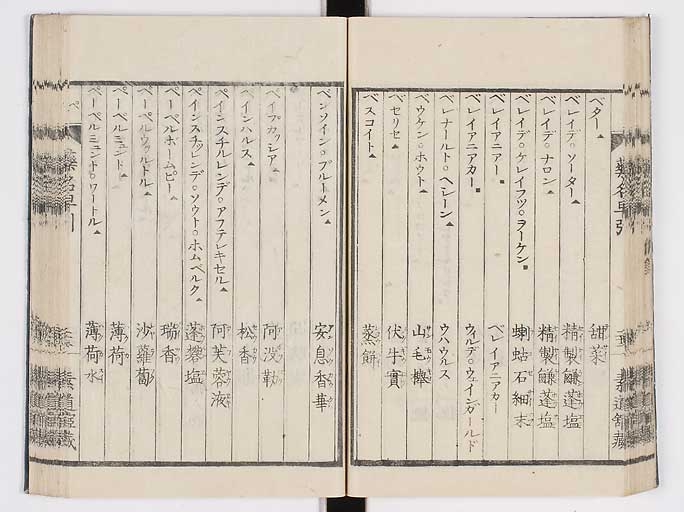 ベター▲ 甜菜
ベレイデ○ソーター▲ 精製鹹蓬塩
ベレイデ○ナロン▲ 精製鹹蓬塩
ベレイデ○ケレイフツ○ヲーケン■ 蝲蛄石細末
ベレイアニアー■ ベレイアニアカー
ベレイアニアカー■ ウィルデ○ウェインガールド
ベレナールト○ヘレーン▲ ウハウルス
ベウケン○ホウト▲ 山毛欅
ベセリセ▲ 伏牛實
ベスコイト▲ 蒸餅
ベンソイン○ブルーメン▲ 安息香華
阿没勒
ペインハルス▲ 松香
ペインスチルレンデ○アフテレキセル▲ 阿芙蓉液
ペインスチルレンデ○ソウト○ホムベルク▲ 蓬砂塩
ペーペルホームピー▲ 瑞香
ペーペルウヲルトル▲ 沙蘿蔔
ペーペルミュント▲ 薄荷
ペーペルミュント○ワートル▲ 薄荷水
藥名早引